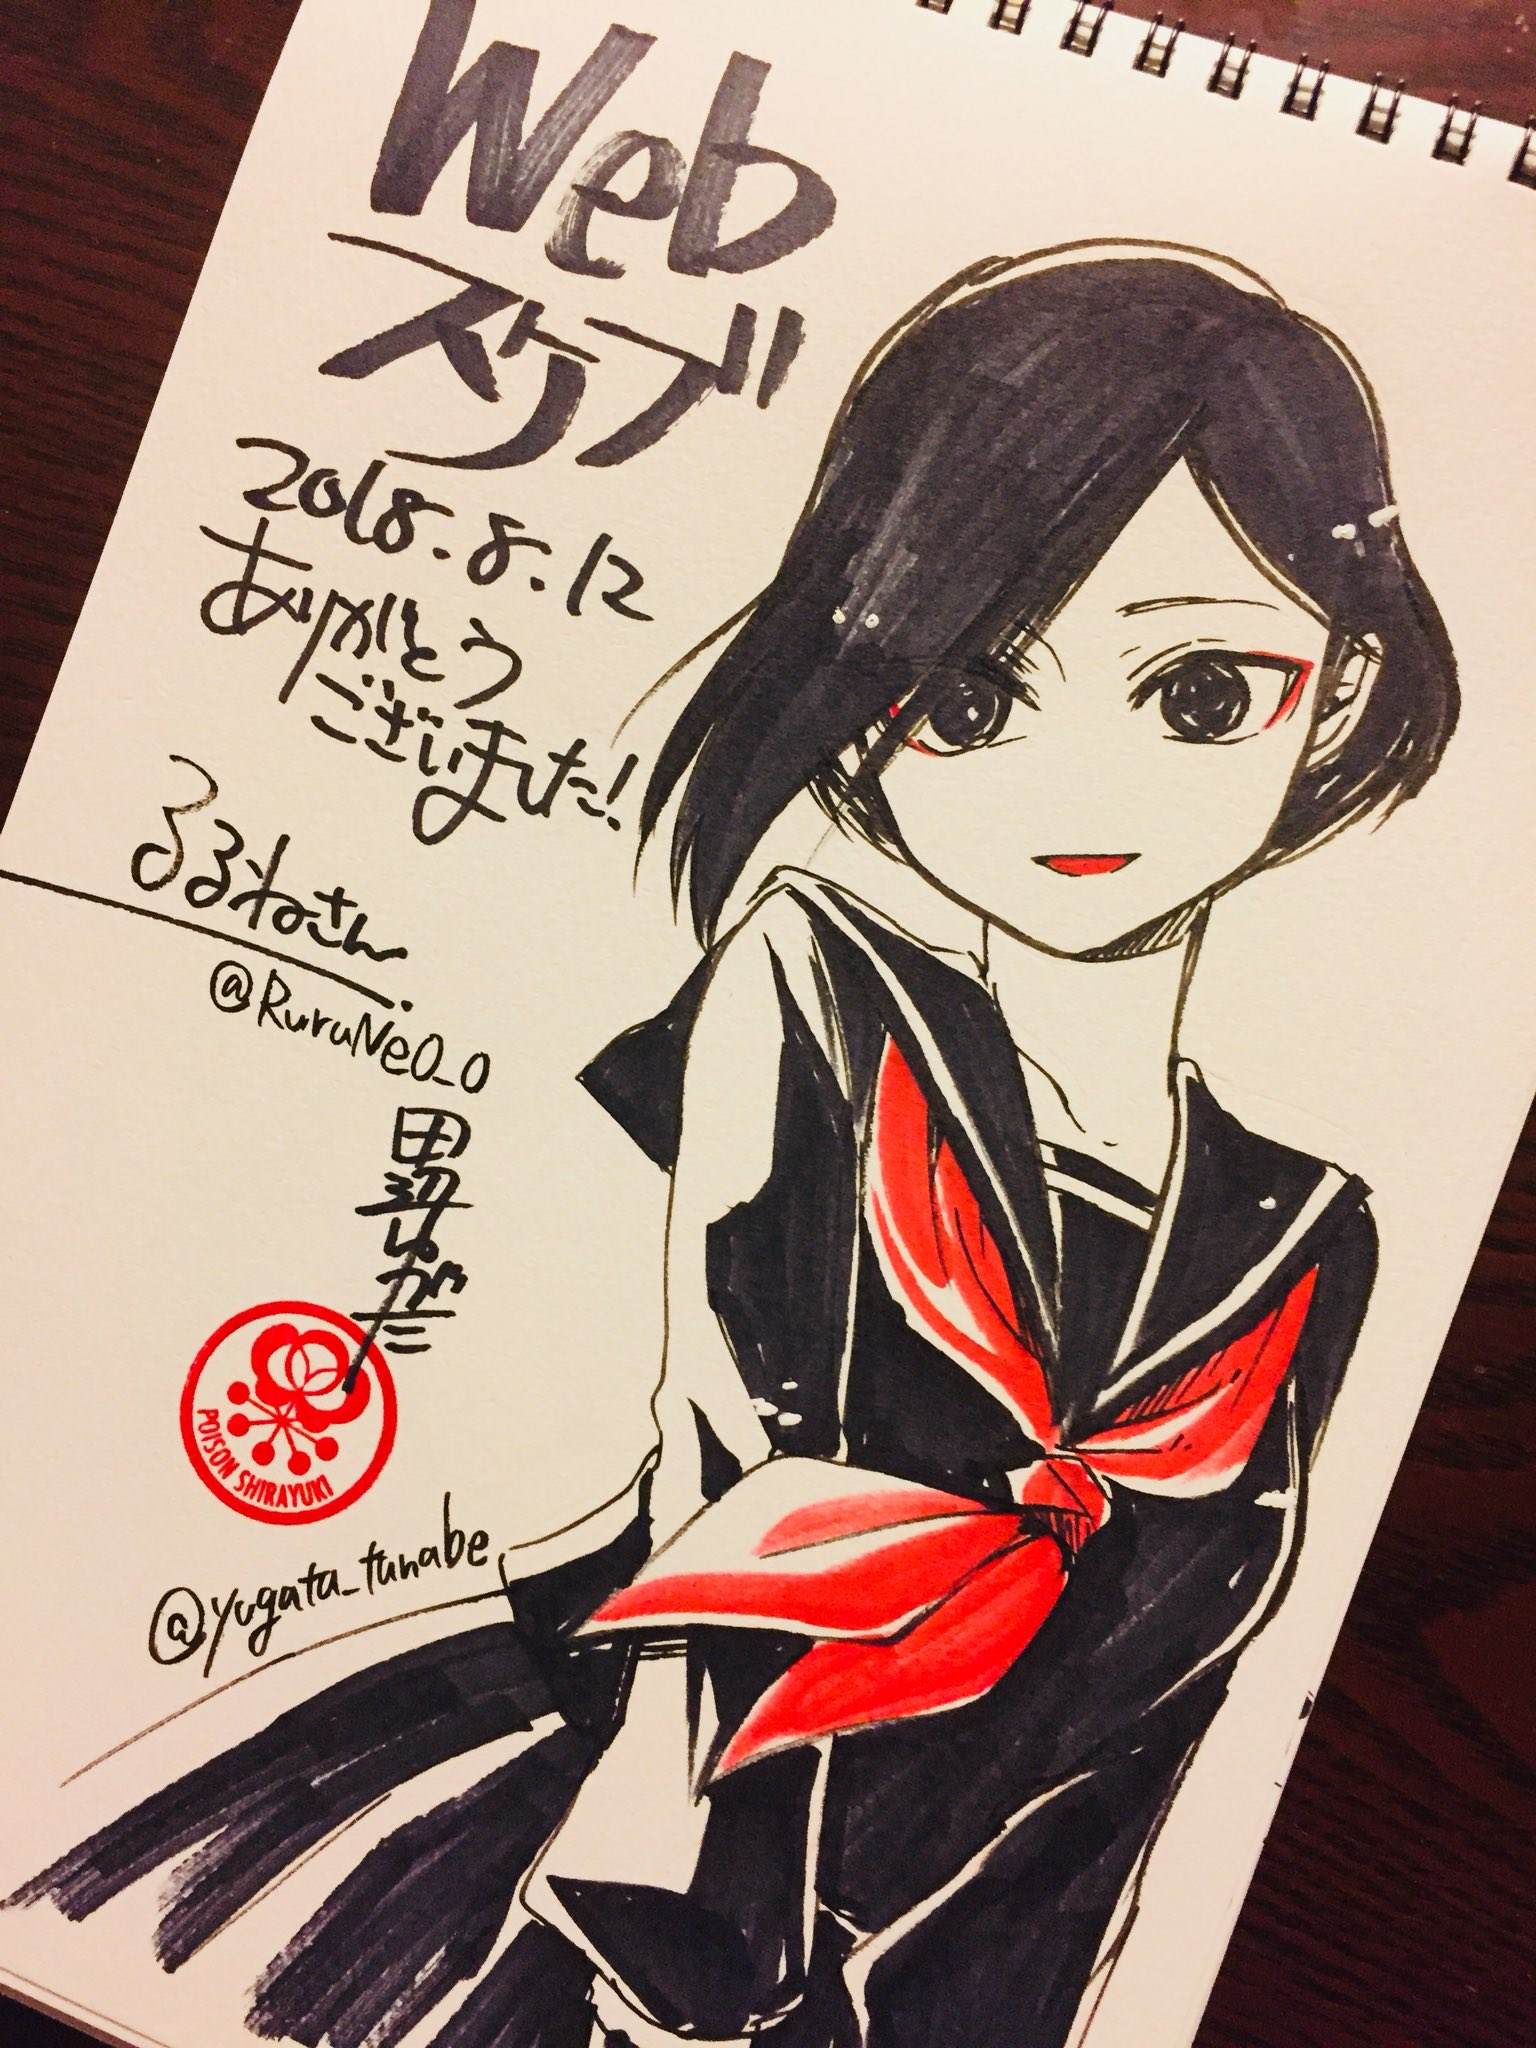 Web
スケブ
2018.8.12
ありがとう
ございました!
るるねさん
@RuruNeO_O
田辺ゆがた
POISON SHIRAYUKI
@yugata_tanabe